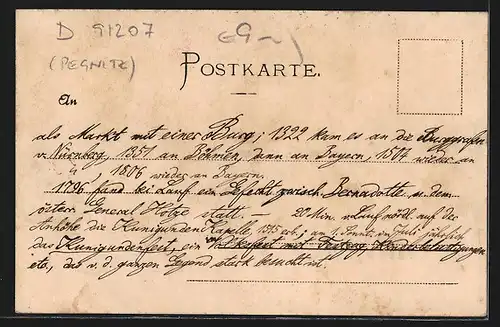 D 91207
€9-
(PEGNITZ)
POSTKARTE.
An
als Markt mit einer Burg; 1322 kam es an die Burggrafen
v. Nürnberg, 1351 an Böhmen, dann an Bayern, 1504 wieder an
1806 wieder an Bayern.
1796 fand bei Lauf ein Gefecht zwisch Bernadotte u. dem
östern General Hotze statt. — 20 Min v. Lauf nördl auf der
Anhöhe die Kunigunden Kapelle, erb.; am 1. Sonnt. im Juli jährlich
das Kunigundenfest, ein Volksfest mit Festzug, Kinderbelustigungen
etc., das v. d. ganzen Gegend stark besucht ist.